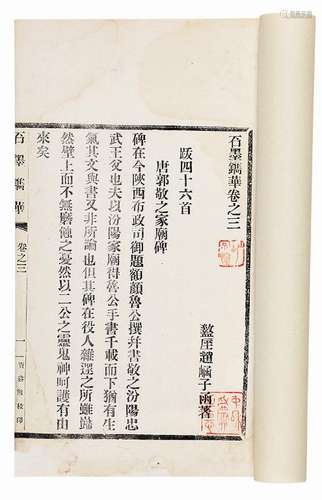 石墨鐫華卷之三
盩厔趙崡子函著
跋四十六首
唐郭敬之家廟碑
碑在今陝西布政司御題額顏魯公撰并書敬之汾陽忠
武王父也夫以汾陽家廟得魯公手書千載而下猶有生
氣其文與書又非所論也但其碑在役人雜遝之所雖巋
然壁上而不無磨蝕之憂然以二公之靈鬼神呵護有由
來矣
石墨鐫華
卷之三
一